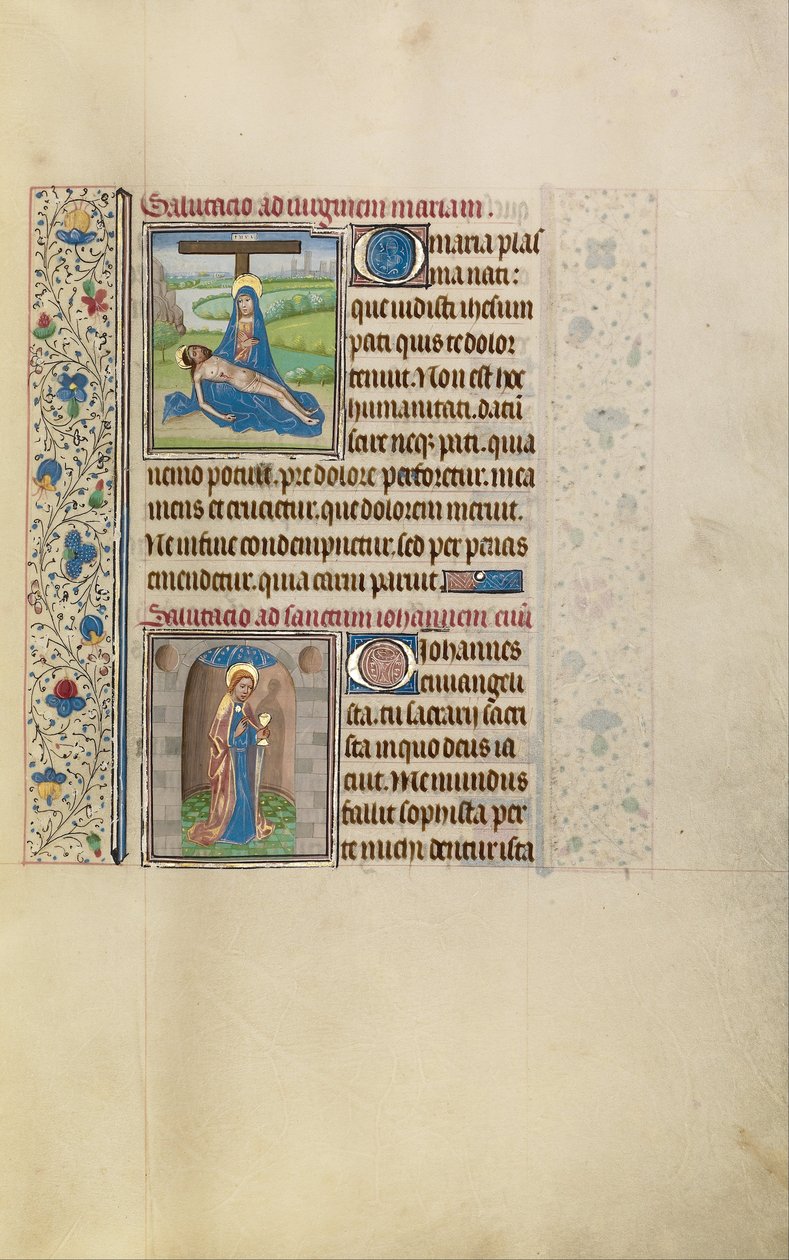 Salutacio ad virginem mariam.
O maria plas
ma nati:
que vidisti ihesum
pati quis te dolor
tenuit. Non est hoc
humanitati. datū
scire neqꝫ pati. quia
nemo potuit. pre dolore perforetur. mea
mens et crucietur. que dolorem meruit.
Ne in fine condempnetur. sed per penas
emendetur. quia carni paruit
Salutacio ad sanctum iohannem
O Iohannes
ewangeli
sta. tu sacrarij sacri
sta in quo deus
Me mundus
fallit sophista per
te michi dentur ista